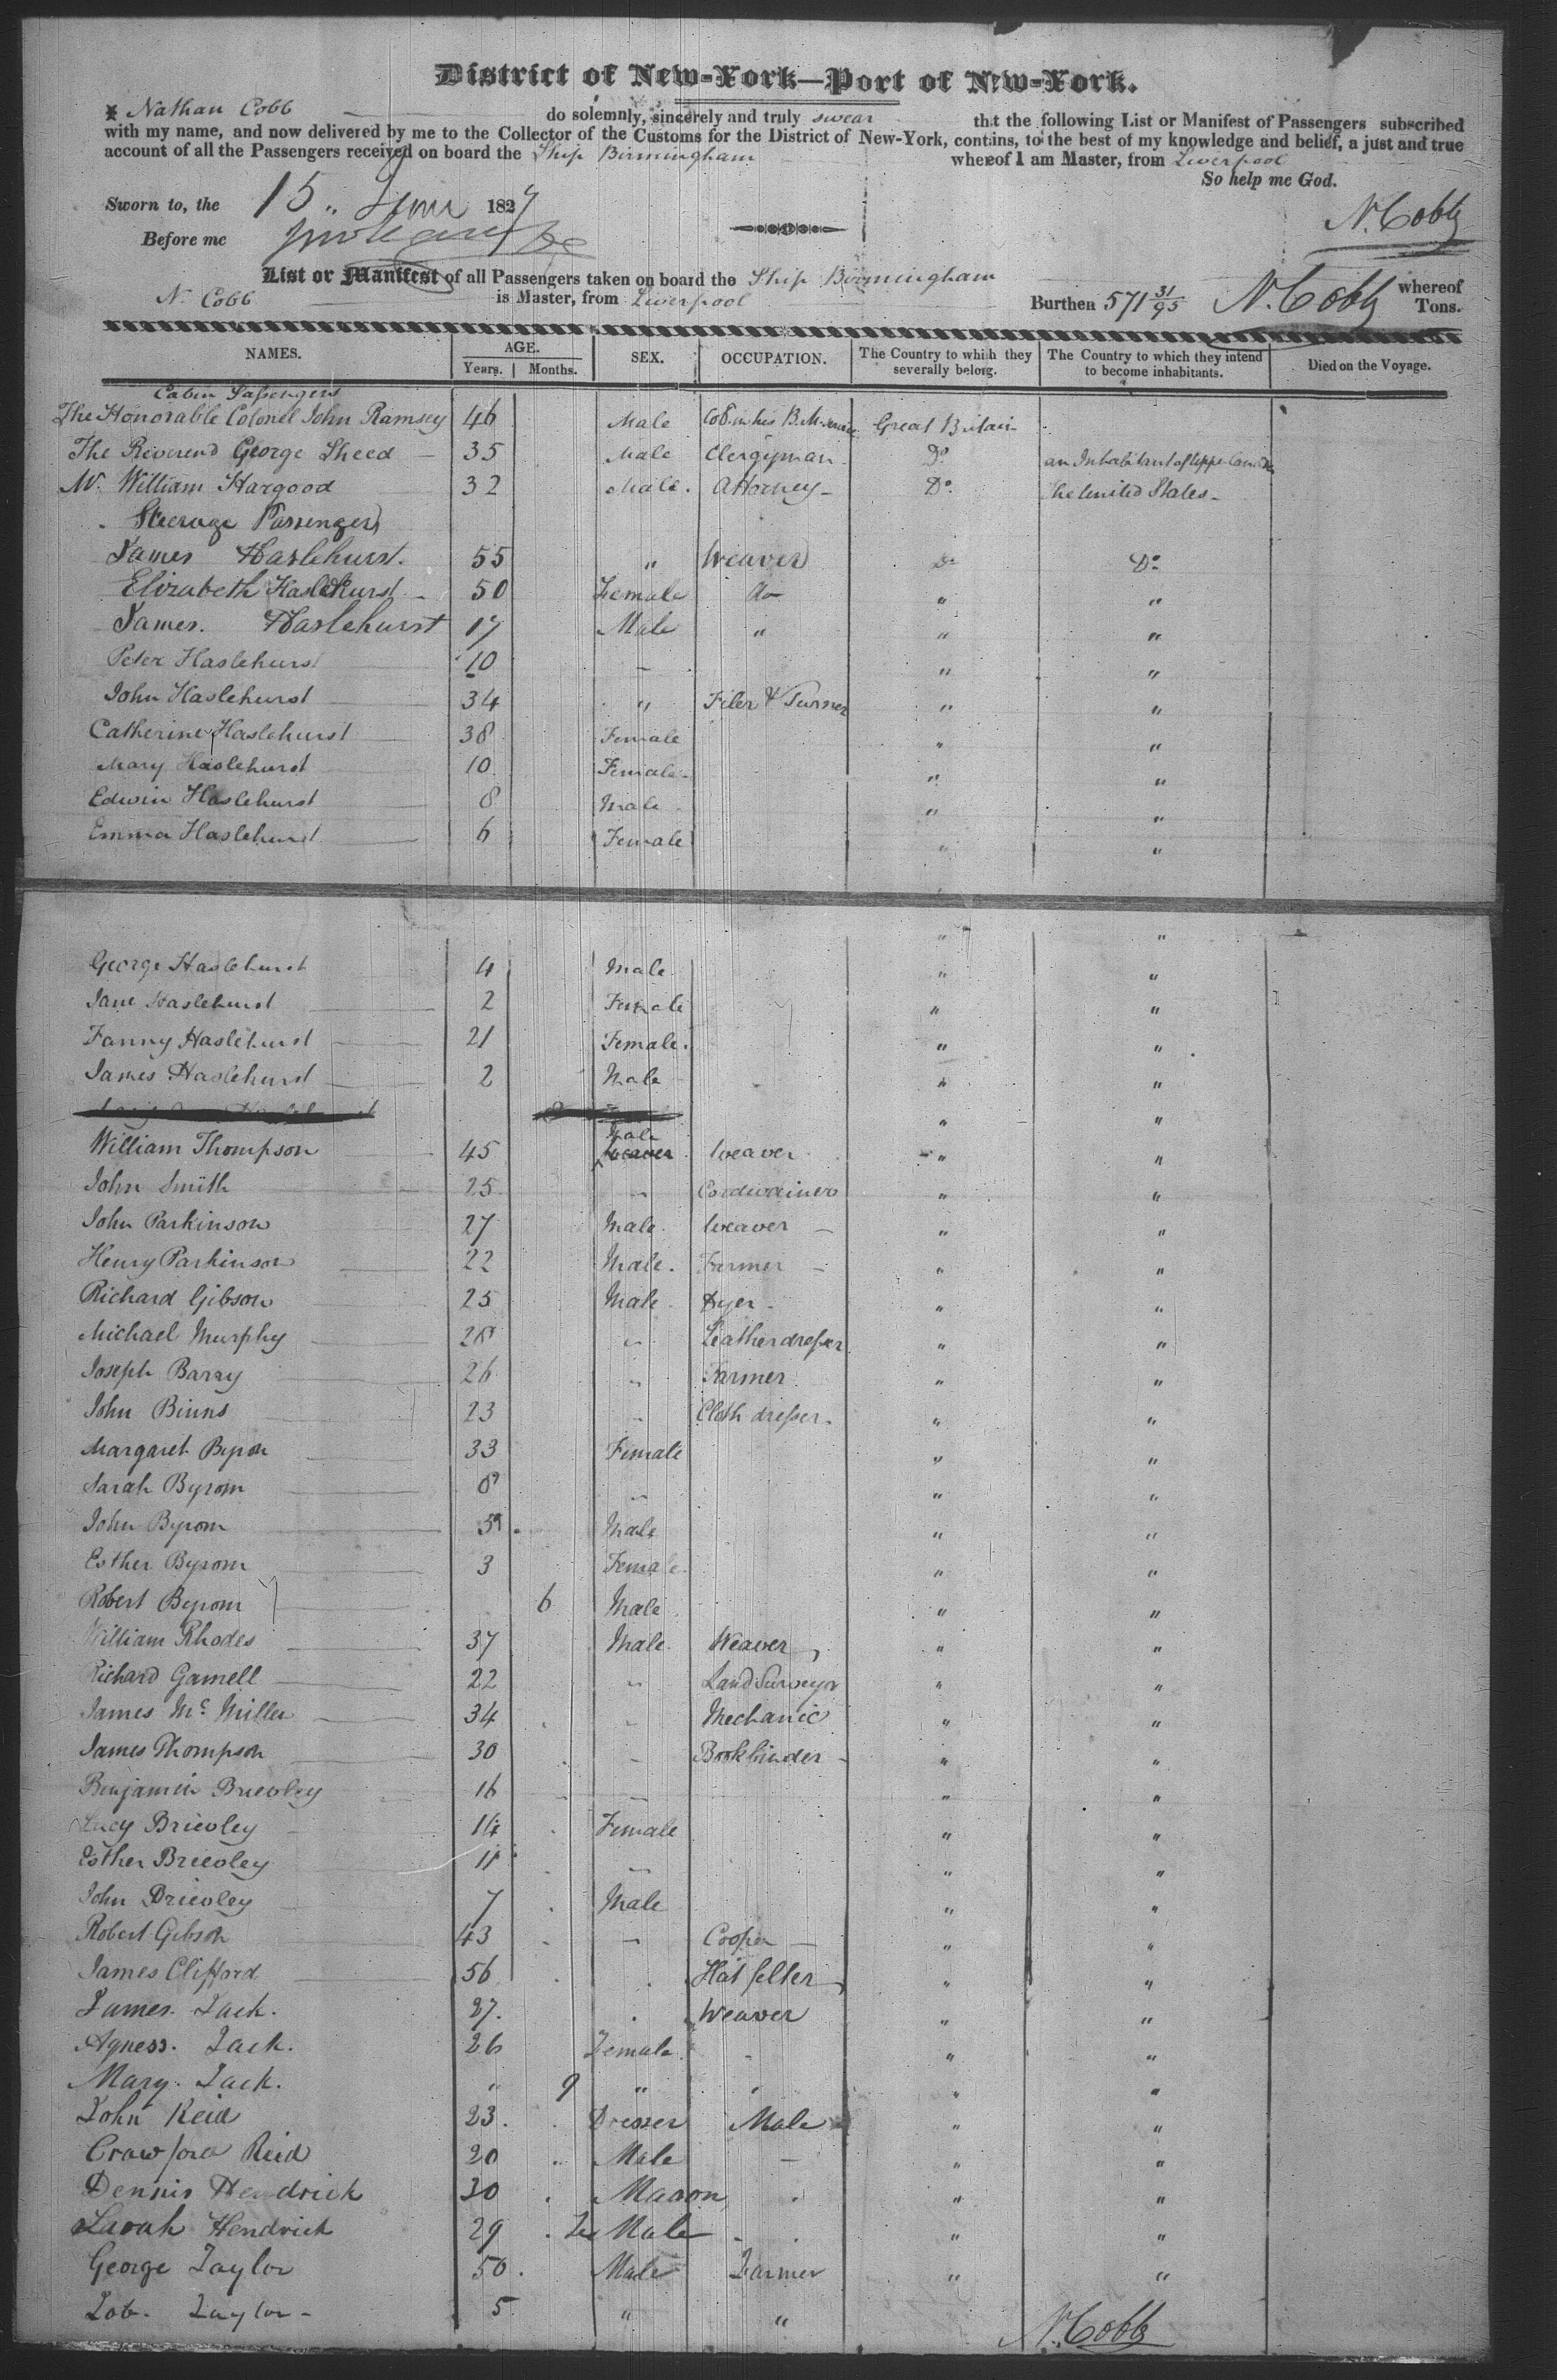 District of New-York—Port of New-York.
I, Nathan Cobb do solemnly, sincerely and truly swear that the following List or Manifest of Passengers subscribed
with my name, and now delivered by me to the Collector of the Customs for the District of New-York, contains, to the best of my knowledge and belief, a just and true
account of all the Passengers received on board the Ship Birmingham whereof I am Master, from Liverpool
So help me God.
Sworn to, the 15 " June 1827
N. Cobb
Before me
List or Manifest of all Passengers taken on board the Ship Birmingham whereof
N. Cobb is Master, from Liverpool Burthen 571 31/95 N. Cobb Tons.
NAMES. AGE. Years. Months. SEX. OCCUPATION. The Country to which they severally belong. The Country to which they intend to become inhabitants. Died on the Voyage.
Cabin Passengers
The Honorable Colonel John Ramsey 46 Male Col. in his B. M. Great Britain
The Reverend George Sheed 35 Male Clergyman Do. an Inhabitant of Upper Canada
Mr. William Hargood 32 Male. Attorney Do. The United States
Steerage Passengers
James Haslehurst. 55 " Weaver Do Do
Elizabeth Haslehurst 50 Female do " "
James. Haslehurst 17 Male " " "
Peter Haslehurst 10 - " "
John Haslehurst 34 " Filer & Turner " "
Catherine Haslehurst 38 Female " "
Mary Haslehurst 10 Female " "
Edwin Haslehurst 8 Male " "
Emma Haslehurst 6 Female " "
" "
George Haslehurst 4 Male " "
Jane Haslehurst 2 Female " "
Fanny Haslehurst 21 Female. " "
James Haslehurst 2 Male " "
" "
William Thompson 45 Male Weaver Weaver " "
John Smith 25 " Cordwainer " "
John Parkinson 27 Male Weaver " "
Henry Parkinson 22 Male. Farmer " "
Richard Gibson 25 Male Dyer " "
Michael Murphy 28 " Leatherdresser " "
Joseph Barry 26 " Farmer " "
John Binns 23 " Cloth dresser " "
Margaret Byrom 33 Female " "
Sarah Byrom 8 " " "
John Byrom 5 Male " "
Esther Byrom 3 Female " "
Robert Byrom 6 Male " "
William Rhodes 37 Male Weaver " "
Richard Gamell 22 " Land Surveyor " "
James Mc Miller 34 " Mechanic " "
James Thompson 30 " Bookbinder " "
Benjamin Brieoley 16 " " "
Lucy Brieoley 14 Female " "
Esther Brieoley 11 " " "
John Brieoley 7 Male " "
Robert Gibson 43 " Cooper " "
James Clifford 56 Hat felter " "
James. Jack. 27. Weaver " "
Agness. Jack. 26 Female " "
Mary. Jack. " 9 " " " "
John Reid 23. Dresser Male " "
Crawford Reid 20 Male - " "
Dennis Hendrick 30 Mason " "
Sarah Hendrick 29 Fe Male " "
George Taylor 50. Male Farmer " "
Job. Taylor 5 " "
N. Cobb